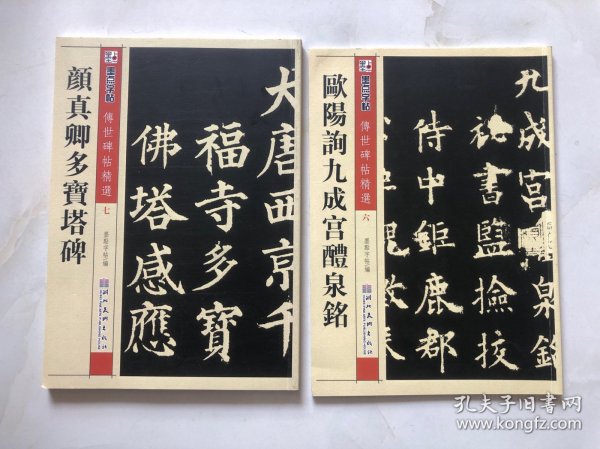 顔真卿多寶塔碑
墨点字帖
傳世碑帖精選
七
墨點字帖/編
湖北美術出版社
大唐西京千
福寺多寶
佛塔感應
歐陽詢九成宫醴泉銘
墨点字帖
傳世碑帖精選
六
墨點字帖/編
湖北美術出版社
九成宫醴泉銘
祕書監撿挍
侍中鉅鹿郡
孔夫子旧书网
www.kongfz.com